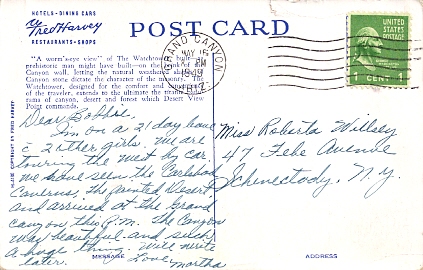 HOTELS · DINING CARS
Fred Harvey
RESTAURANTS · SHOPS
POST CARD
GRAND CANYON
MAY 15
PM
1949
ARIZ.
UNITED STATES POSTAGE
1 CENT 1
"A worm's-eye view" of The Watchtower, built as
prehistoric man might have built—on the brink of the
Canyon wall, letting the natural weathered shapes of
Canyon stone dictate the character of the masonry. The
Watchtower, designed for the comfort and enjoyment
of the traveler, extends to the ultimate the panoramas of canyon, desert and forest which Desert View
Point commands.
Dear Bobbie.
I'm on a 21 day leave
c̄ 2 other girls. We are
touring the west by car.
We have seen the Carlsbad
Caverns, the painted Desert
and arrived at the Grand
canyon this P.M. The Canyon
way beautiful and such
a huge thing. Will write
later. Love,
Martha
MESSAGE
Miss Roberta Willsey
47 Ave
Schenectady, N.Y.
ADDRESS